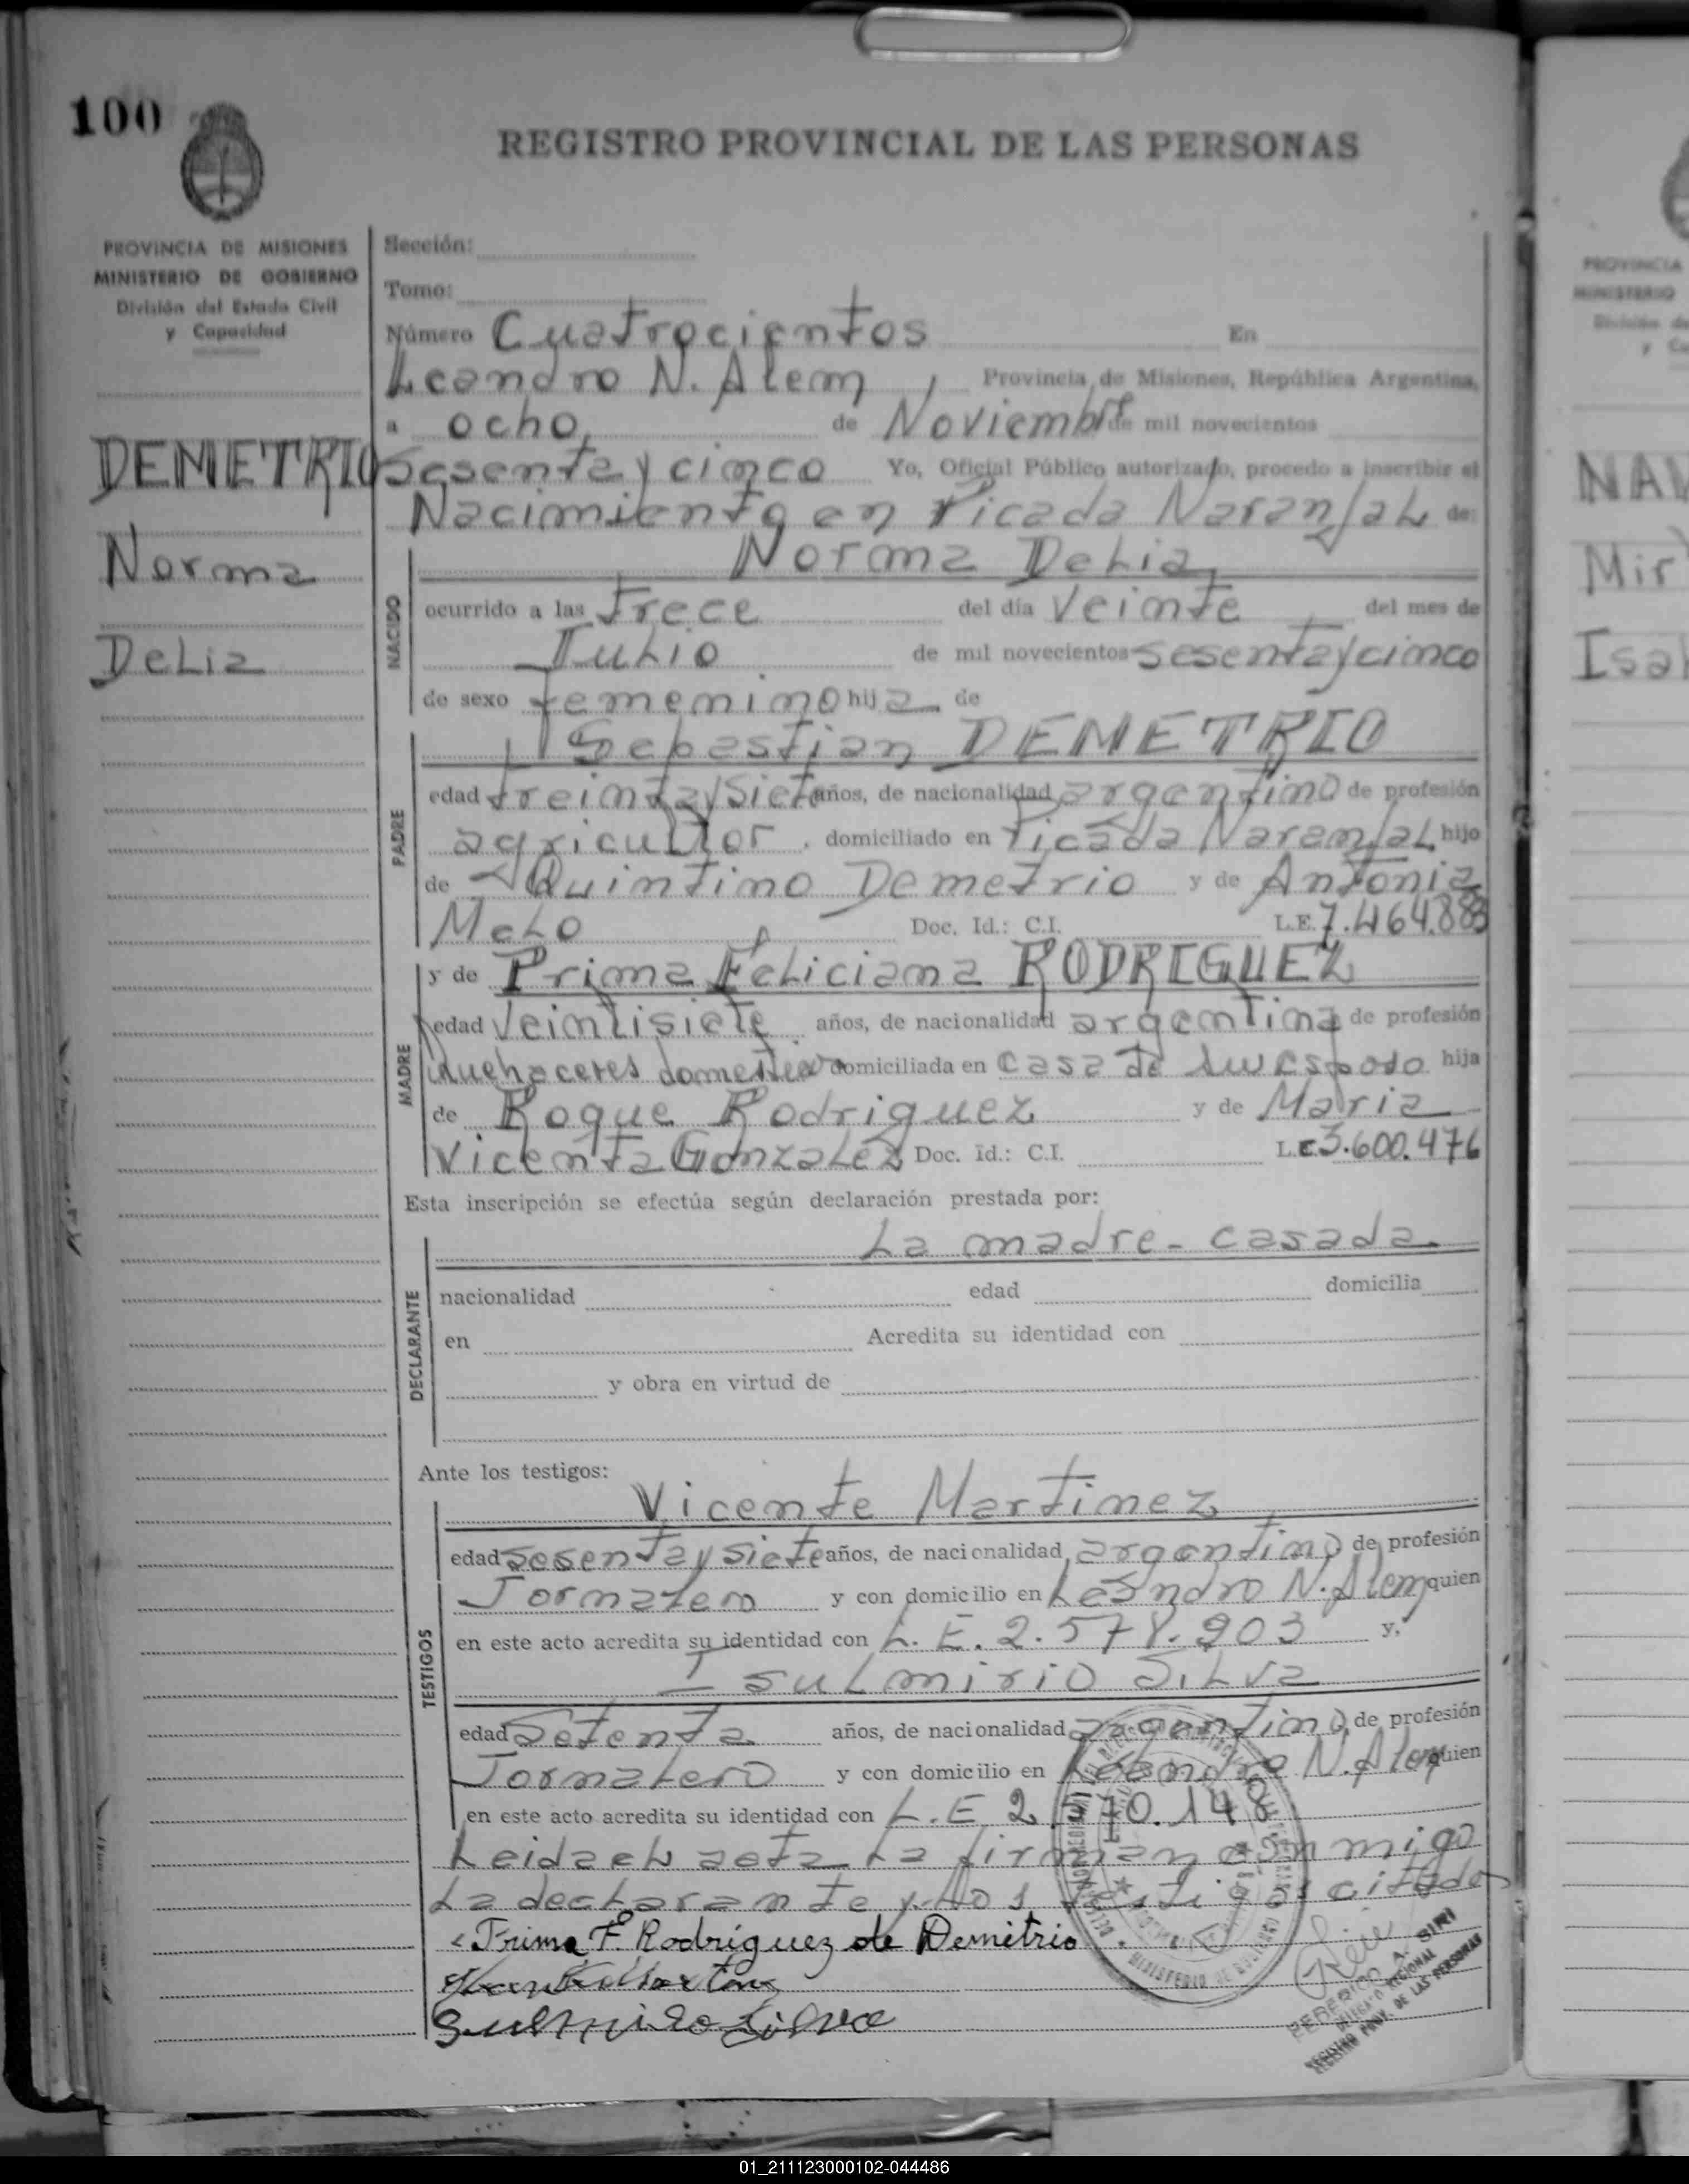 100
REGISTRO PROVINCIAL DE LAS PERSONAS
PROVINCIA DE MISIONES
MINISTERIO DE GOBIERNO
División del Estado Civil
y Capacidad
DEMETRIO
Norma
Delia
Sección:
Tomo:
Número Cuatrocientos En
Leandro N. Alem, Provincia de Misiones, República Argentina,
a ocho, de Noviembre de mil novecientos
Sesenta y cinco Yo, Oficial Público autorizado, procedo a inscribir el
Nacimiento en Picada Naranjal de:
NACIDO
Norma Delia,
ocurrido a las trece del día veinte del mes de
Julio de mil novecientos sesenta y cinco
de sexo femenino hija de
PADRE
Sebastian DEMETRIO
edad treinta y siete años, de nacionalidad argentino de profesión
agricultor, domiciliado en Picada Naranjal hijo
de Quintino Demetrio y de Antonia
Melo Doc. Id.: C.I. L.E. 7.464.883
MADRE
y de Prima Feliciana RODRIGUEZ
edad veintisiete años, de nacionalidad argentina de profesión
quehaceres domesticos domiciliada en casa de su esposo hija
de Roque Rodriguez y de Maria
Vicenta Gonzalez Doc. Id.: C.I. L.C 3.600.476
Esta inscripción se efectúa según declaración prestada por:
DECLARANTE
La madre - casada.
nacionalidad edad domicilia
en Acredita su identidad con
y obra en virtud de
Ante los testigos:
TESTIGOS
Vicente Martinez
edad sesenta y siete años, de nacionalidad argentino de profesión
Jornalero y con domicilio en Leandro N. Alem quien
en este acto acredita su identidad con L. E. y,
Isulmirio Silva
edad Setenta años, de nacionalidad argentino, de profesión
Jornalero y con domicilio en Leandro N. Alem quien
en este acto acredita su identidad con L.E 2.570.148.
Leida el acta la firman conmigo
La declarante y los testigos citados
Prima F. Rodríguez de Demetrio
Sulmiro Silva
A. SIRI
DELEGADO REGIONAL
REGISTRO PROV. DE LAS PERSONAS
PROVINCIA
MINISTERIO
NAV
Mir
Isa
01_211123000102-044486